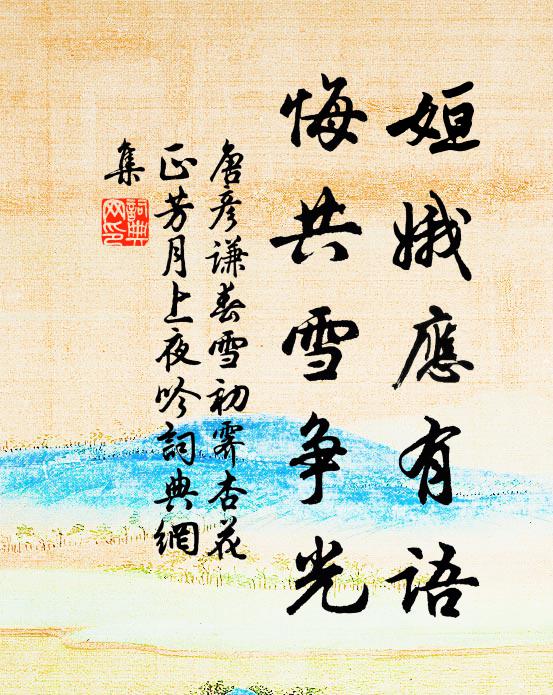 姮娥應有語
悔共雪争光
唐彦謙春雪初霽杏花
正芳月上夜吟詞典網
集
詞典
网印